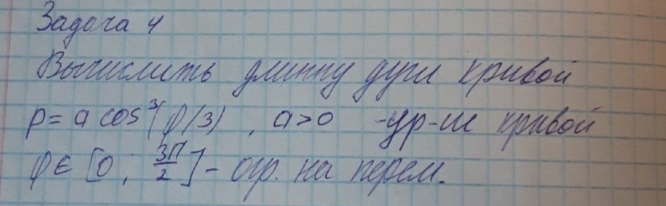 Задача 4
Вычислить длинну дуги кривой
ρ = a cos³(φ/3), a>0 -ур-ие кривой
φ∈[0; 3π/2] - огр. на перем.